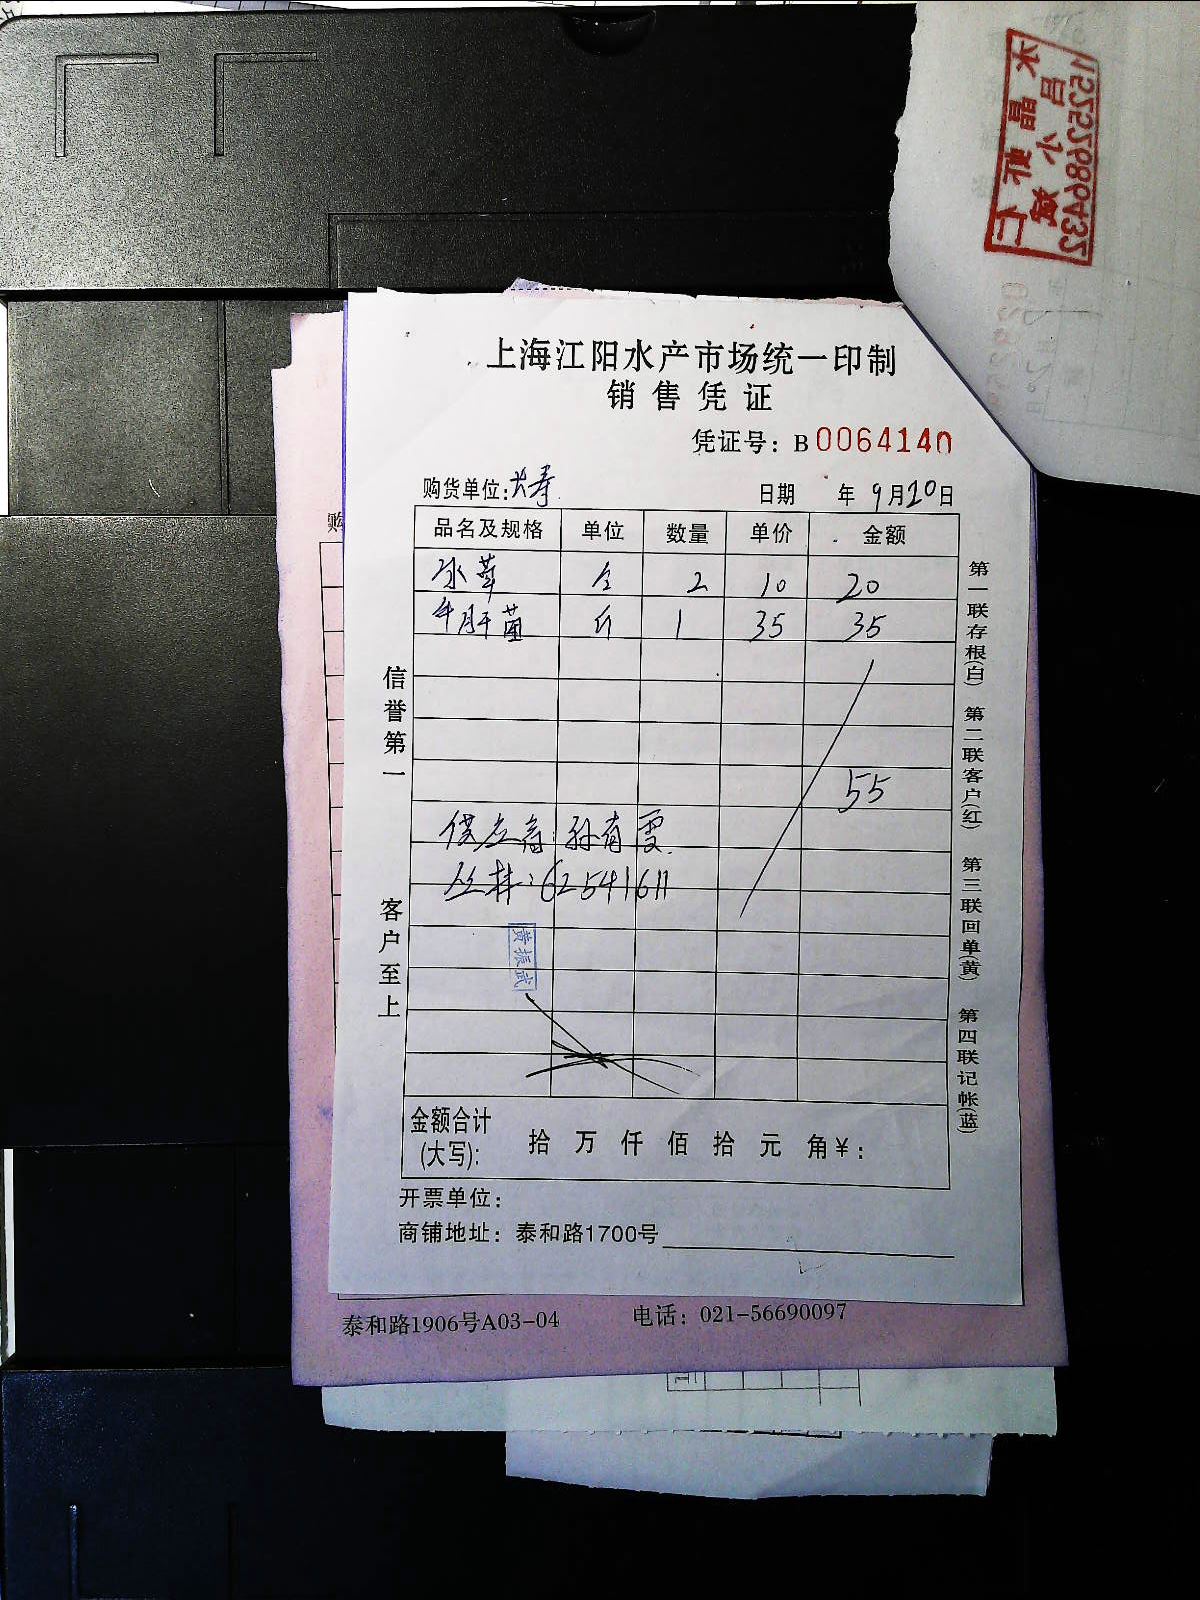 上海江阳水产市场统一印制
销售凭证
凭证号：B 0064140
购货单位：长寿 日期 年 9月20日
品名及规格 单位 数量 单价 金额
冰草 2 10 20
牛肝菌 斤 1 35 35
55
供应商：孙有雯
丛林：62541611
黄振武
金额合计(大写)： 拾 万 仟 佰 拾 元 角 ¥：
开票单位：
商铺地址：泰和路1700号
信誉第一
客户至上
第一联存根(白) 第二联客户(红) 第三联回单(黄) 第四联记帐(蓝)
购
泰和路1906号A03-04 电话：021-56690097
15252686432